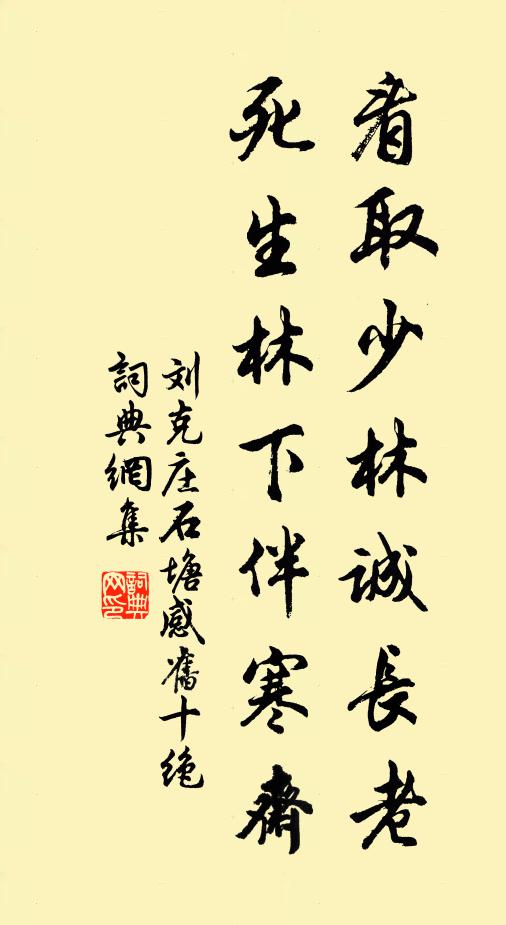 看取少林誠長老
死生林下伴寒齋
刘克庄石塘感舊十绝
詞典網集
詞典
网印